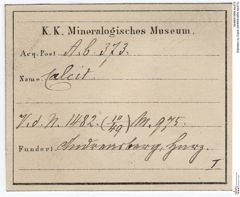 K. K. Mineralogisches Museum.
Acq. Post A. b. 373.
Name: Calcit.
V. d. N. 1482. (10/49) M. 975.
Fundort: Andreasberg, Harz.
I